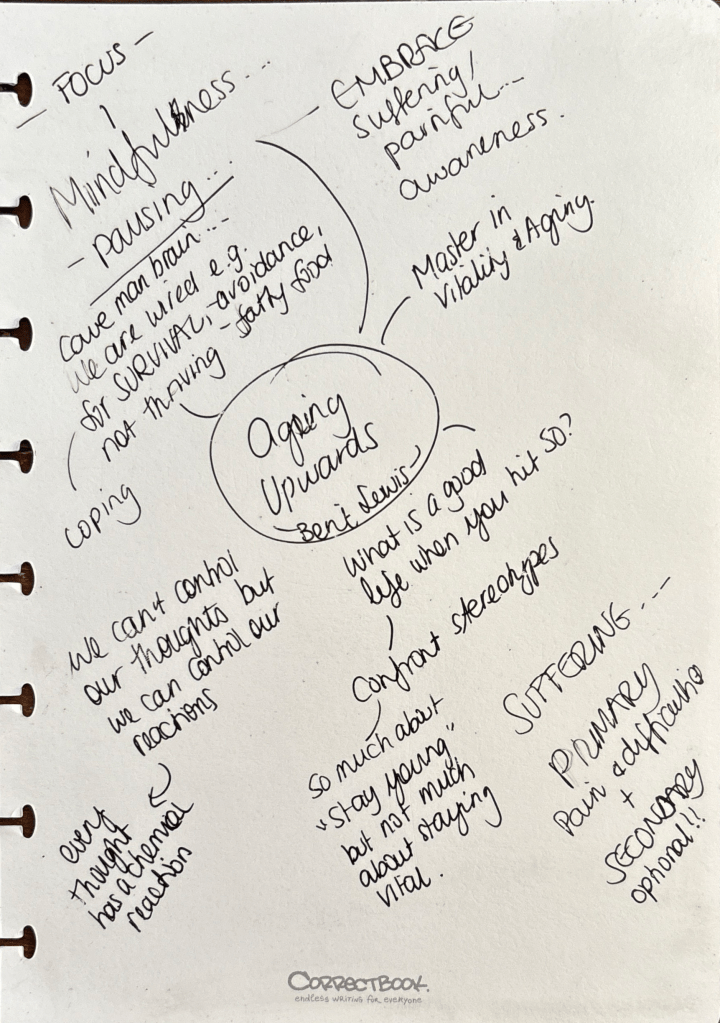 - FOCUS -
Mindfulness...
- pausing...
cave man brain...
We are wired e.g.
for SURVIVAL, -avoidance,
not thriving - fatty food
coping
EMBRACE
suffering/
painful...
awareness.
Master in
Vitality & Aging.
Ageing
Upwards
- Beni Lewis -
What is a good
life when you hit 50?
Confront stereotypes
so much about
"stay young"
but not much
about staying
vital.
We can't control
our thoughts but
we can control our
reactions
every
thought
has a chemical
reaction
SUFFERING...
PRIMARY
Pain & difficulties
+
SECONDARY
optional!!
CORRECTBOOK.
endless writing for everyone